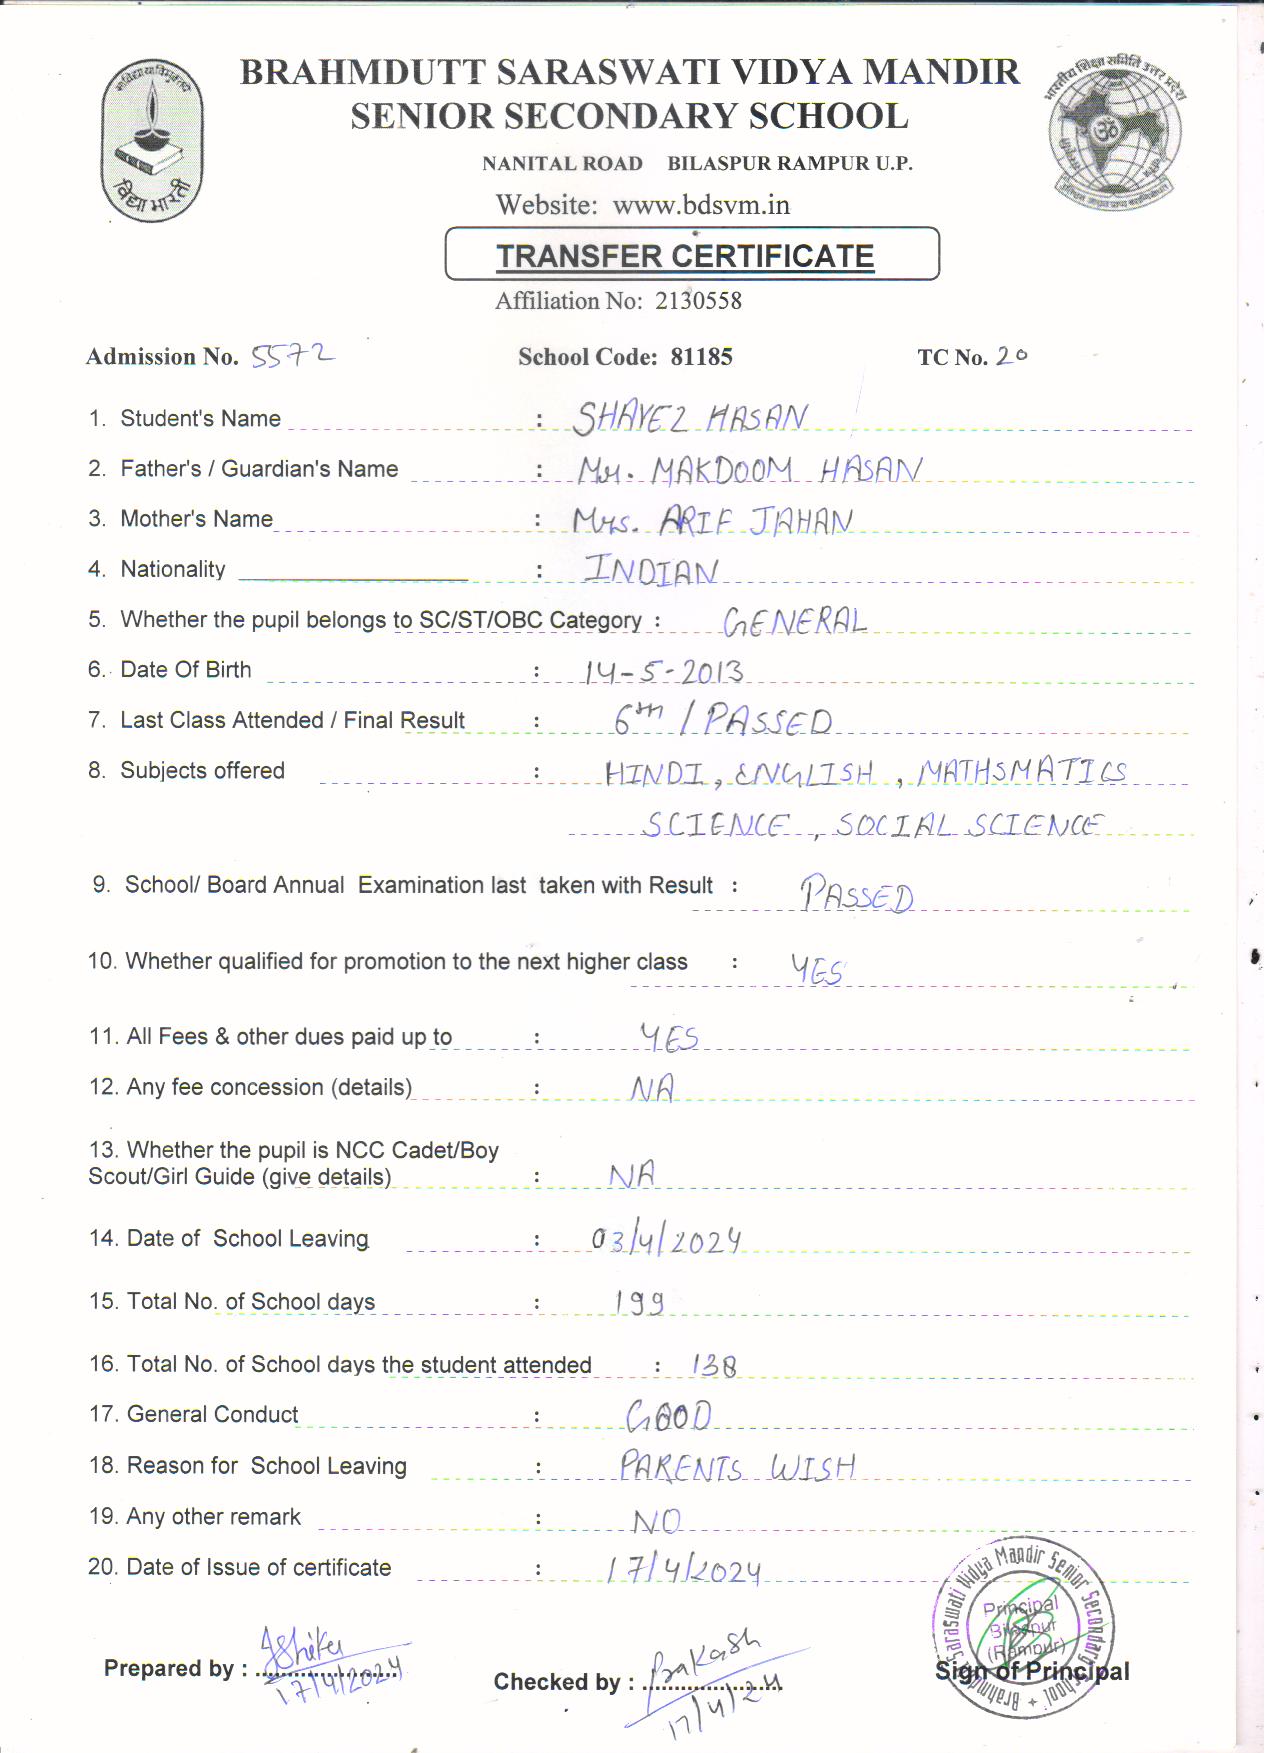 BRAHMDUTT SARASWATI VIDYA MANDIR
SENIOR SECONDARY SCHOOL
NANITAL ROAD BILASPUR RAMPUR U.P.
Website: www.bdsvm.in
विद्या भारती
भारतीय शिक्षा समिति उत्तर प्रदेश
TRANSFER CERTIFICATE
Affiliation No: 2130558
Admission No. 5572 School Code: 81185 TC No. 20
1. Student's Name : SHAYEZ HASAN
2. Father's / Guardian's Name : Mr. MAKDOOM HASAN
3. Mother's Name : Mrs. ARIF JAHAN
4. Nationality : INDIAN
5. Whether the pupil belongs to SC/ST/OBC Category : GENERAL
6. Date Of Birth : 14-5-2013
7. Last Class Attended / Final Result : 6th / PASSED
8. Subjects offered : HINDI, ENGLISH, MATHSMATICS
SCIENCE, SOCIAL SCIENCE
9. School/ Board Annual Examination last taken with Result : PASSED
10. Whether qualified for promotion to the next higher class : YES
11. All Fees & other dues paid up to : YES
12. Any fee concession (details) : NA
13. Whether the pupil is NCC Cadet/Boy
Scout/Girl Guide (give details) : NA
14. Date of School Leaving : 03/4/2024
15. Total No. of School days : 199
16. Total No. of School days the student attended : 138
17. General Conduct : GOOD
18. Reason for School Leaving : PARENTS WISH
19. Any other remark : NO
20. Date of Issue of certificate : 17/4/2024
Prepared by : 17/4/2024
Checked by : Prakash 17/4/24
Saraswati Vidya Mandir Senior Secondary School
Principal
Bilaspur
(Rampur)
Sign of Principal